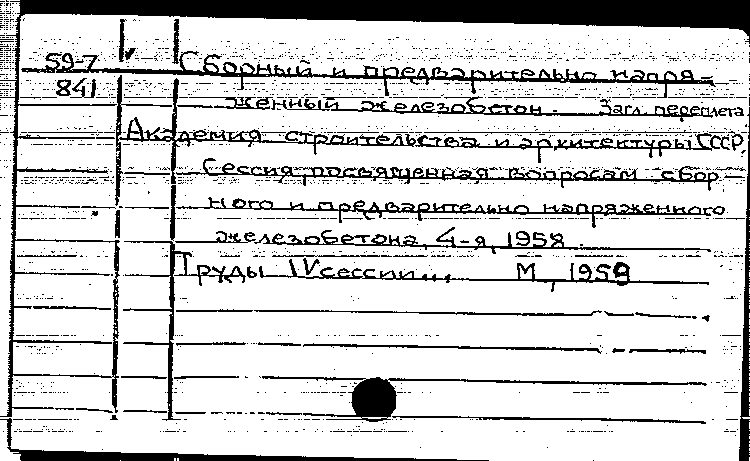 59-7 Сборный и предварительно напря-
841 женный железобетон. Загл. переплета
Академия строительства и архитектуры СССР.
Сессия, посвященная вопросам сбор-
ного и предварительно напряженного
железобетона, 4-я, 1958.
Труды IV сессии... М., 1959